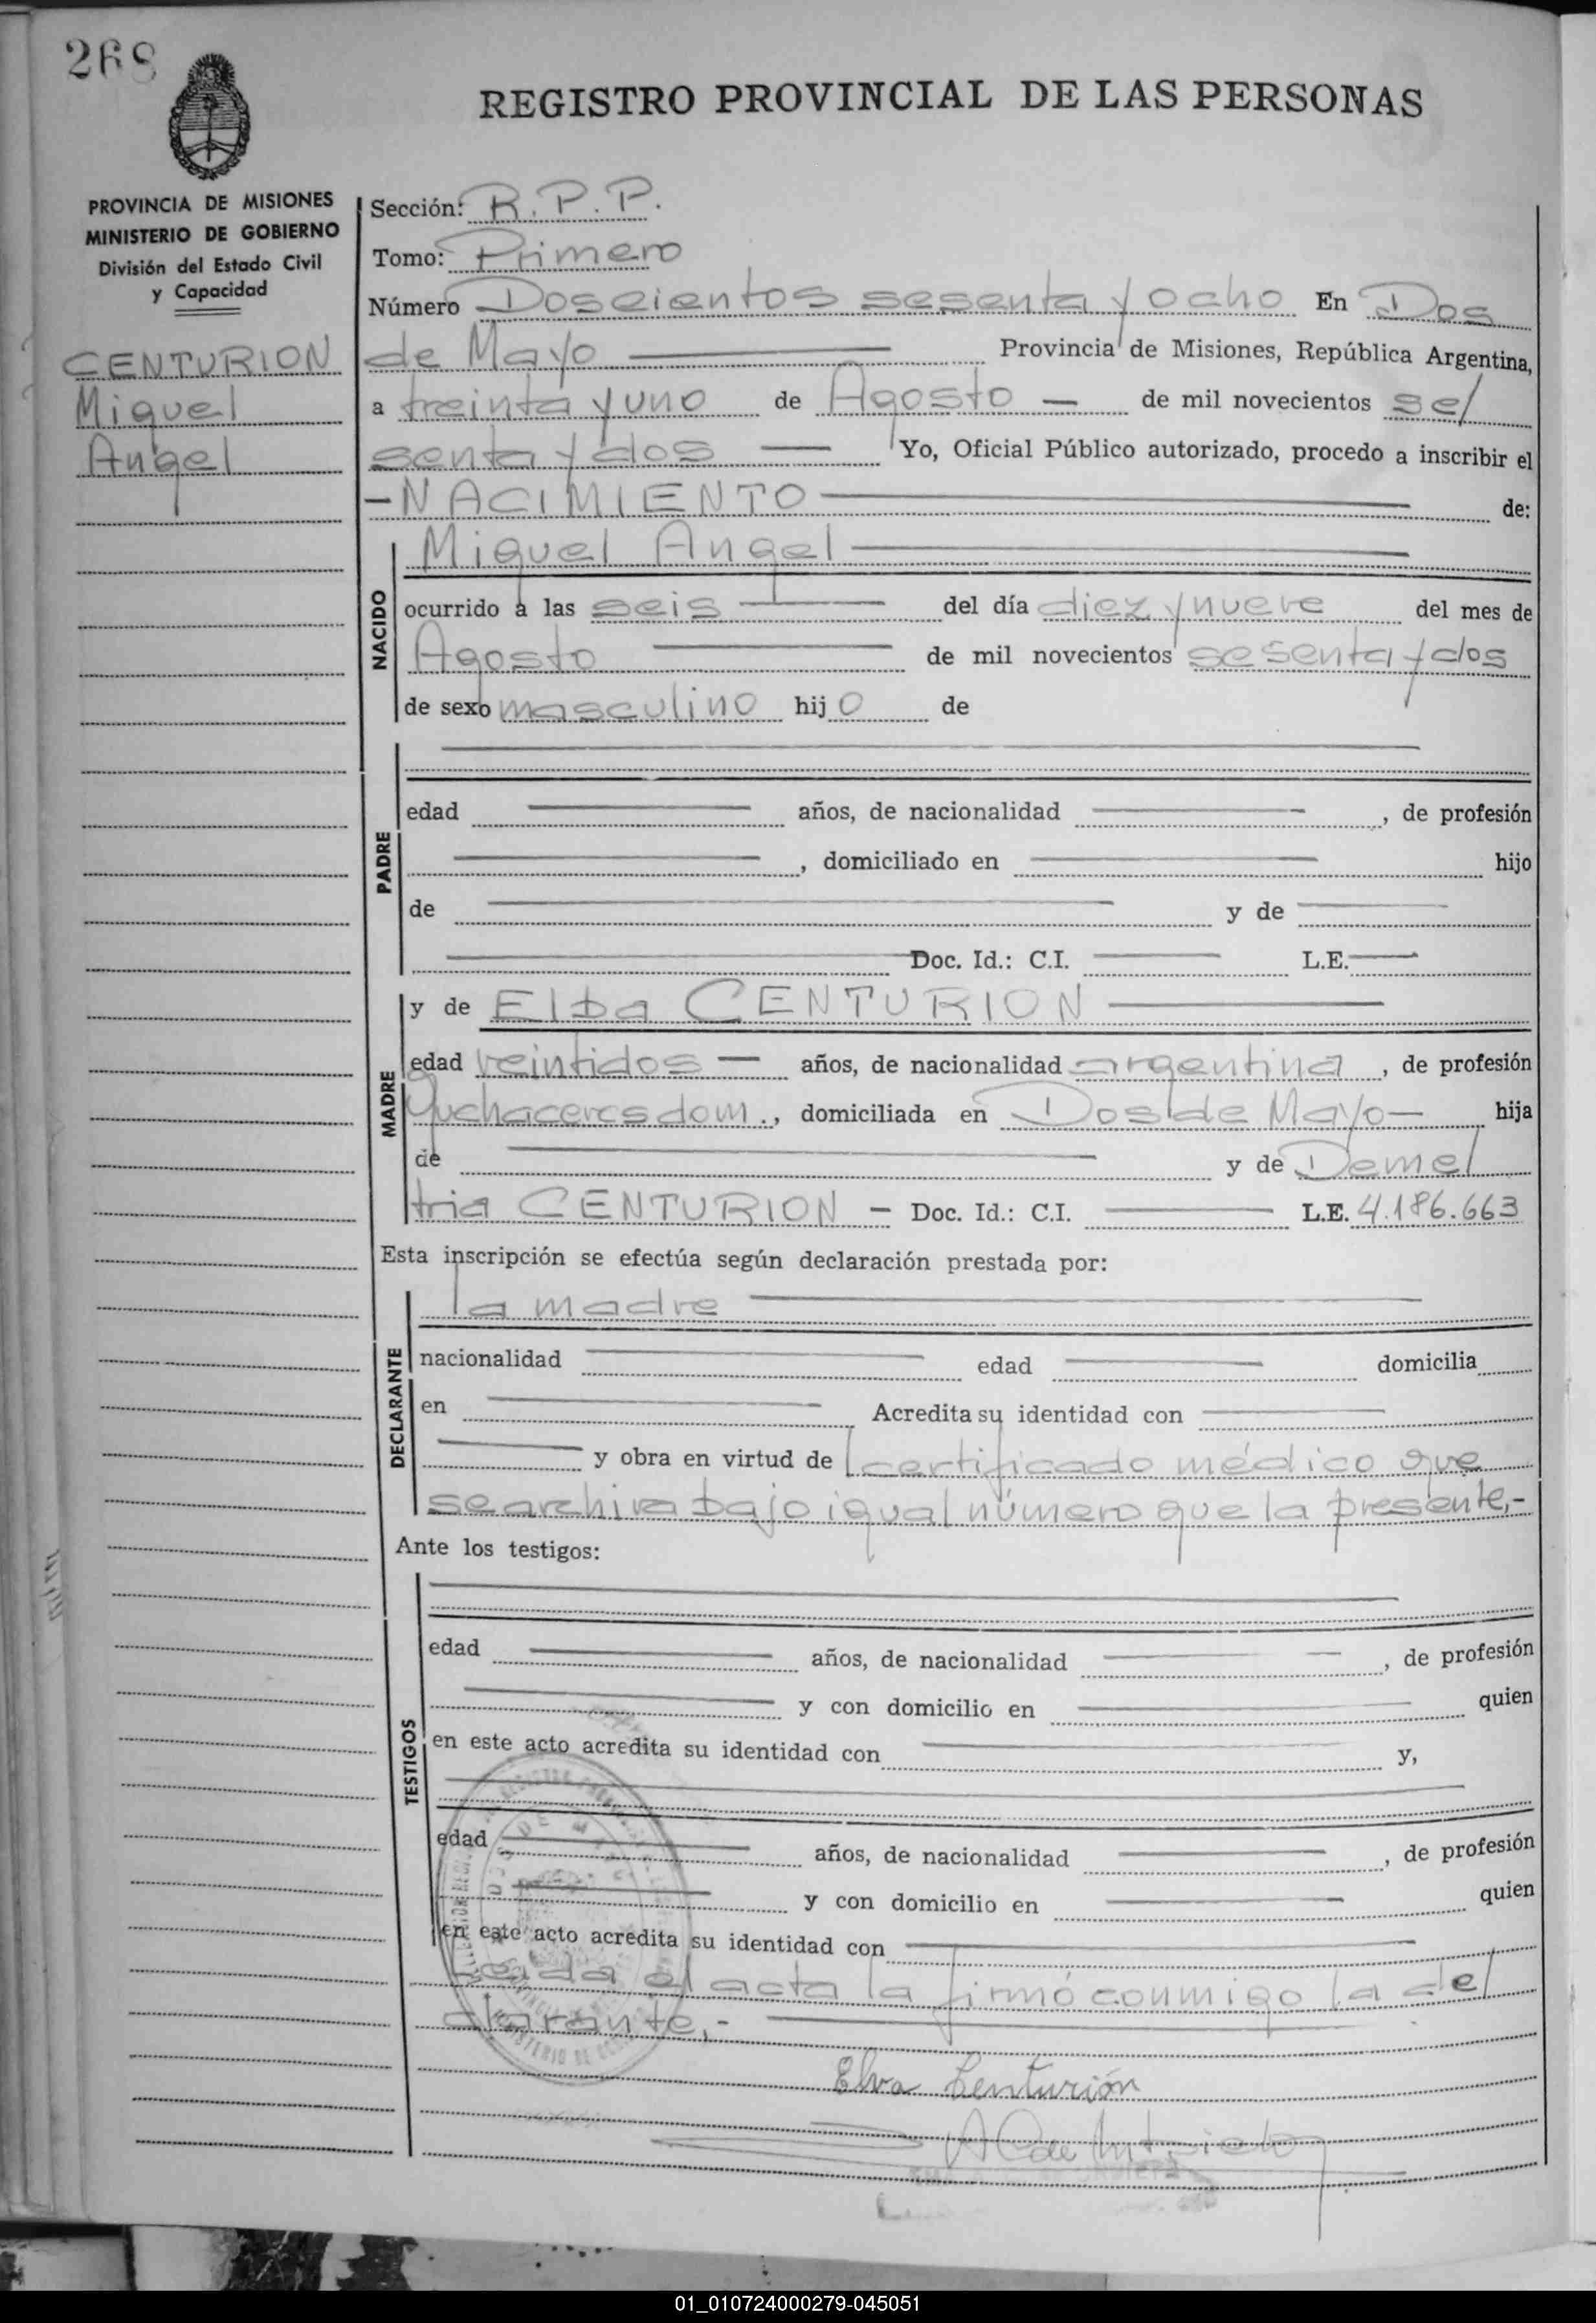 268
REGISTRO PROVINCIAL DE LAS PERSONAS
PROVINCIA DE MISIONES
MINISTERIO DE GOBIERNO
División del Estado Civil
y Capacidad
CENTURION
Miguel
Angel
Sección: R. P. P.
Tomo: Primero
Número Doscientos sesenta y ocho En Dos
de Mayo Provincia de Misiones, República Argentina,
a treinta y uno de Agosto — de mil novecientos se/
senta y dos — Yo, Oficial Público autorizado, procedo a inscribir el
— NACIMIENTO — de:
NACIDO
Miguel Angel
ocurrido a las seis — del día diez y nueve del mes de
Agosto — de mil novecientos sesenta y dos
de sexo masculino hijo de
PADRE
edad — años, de nacionalidad —, de profesión
—, domiciliado en — hijo
de — y de —
— Doc. Id.: C.I. — L.E. —
MADRE
y de Elba CENTURION —
edad veintidos — años, de nacionalidad argentina, de profesión
Quehaceres dom., domiciliada en Dos de Mayo — hija
de — y de Deme/
tria CENTURION — Doc. Id.: C.I. — L.E. 4.186.663
Esta inscripción se efectúa según declaración prestada por:
DECLARANTE
la madre —
nacionalidad — edad — domicilia
en — Acredita su identidad con —
— y obra en virtud de certificado médico que
se archiva bajo igual número que la presente,-
Ante los testigos:
TESTIGOS
edad — años, de nacionalidad —, de profesión
— y con domicilio en — quien
en este acto acredita su identidad con — y,
edad — años, de nacionalidad —, de profesión
— y con domicilio en — quien
en este acto acredita su identidad con —
Leida el acta la firmó conmigo la de/
clarante,-
Elva Centurión
01_010724000279-045051